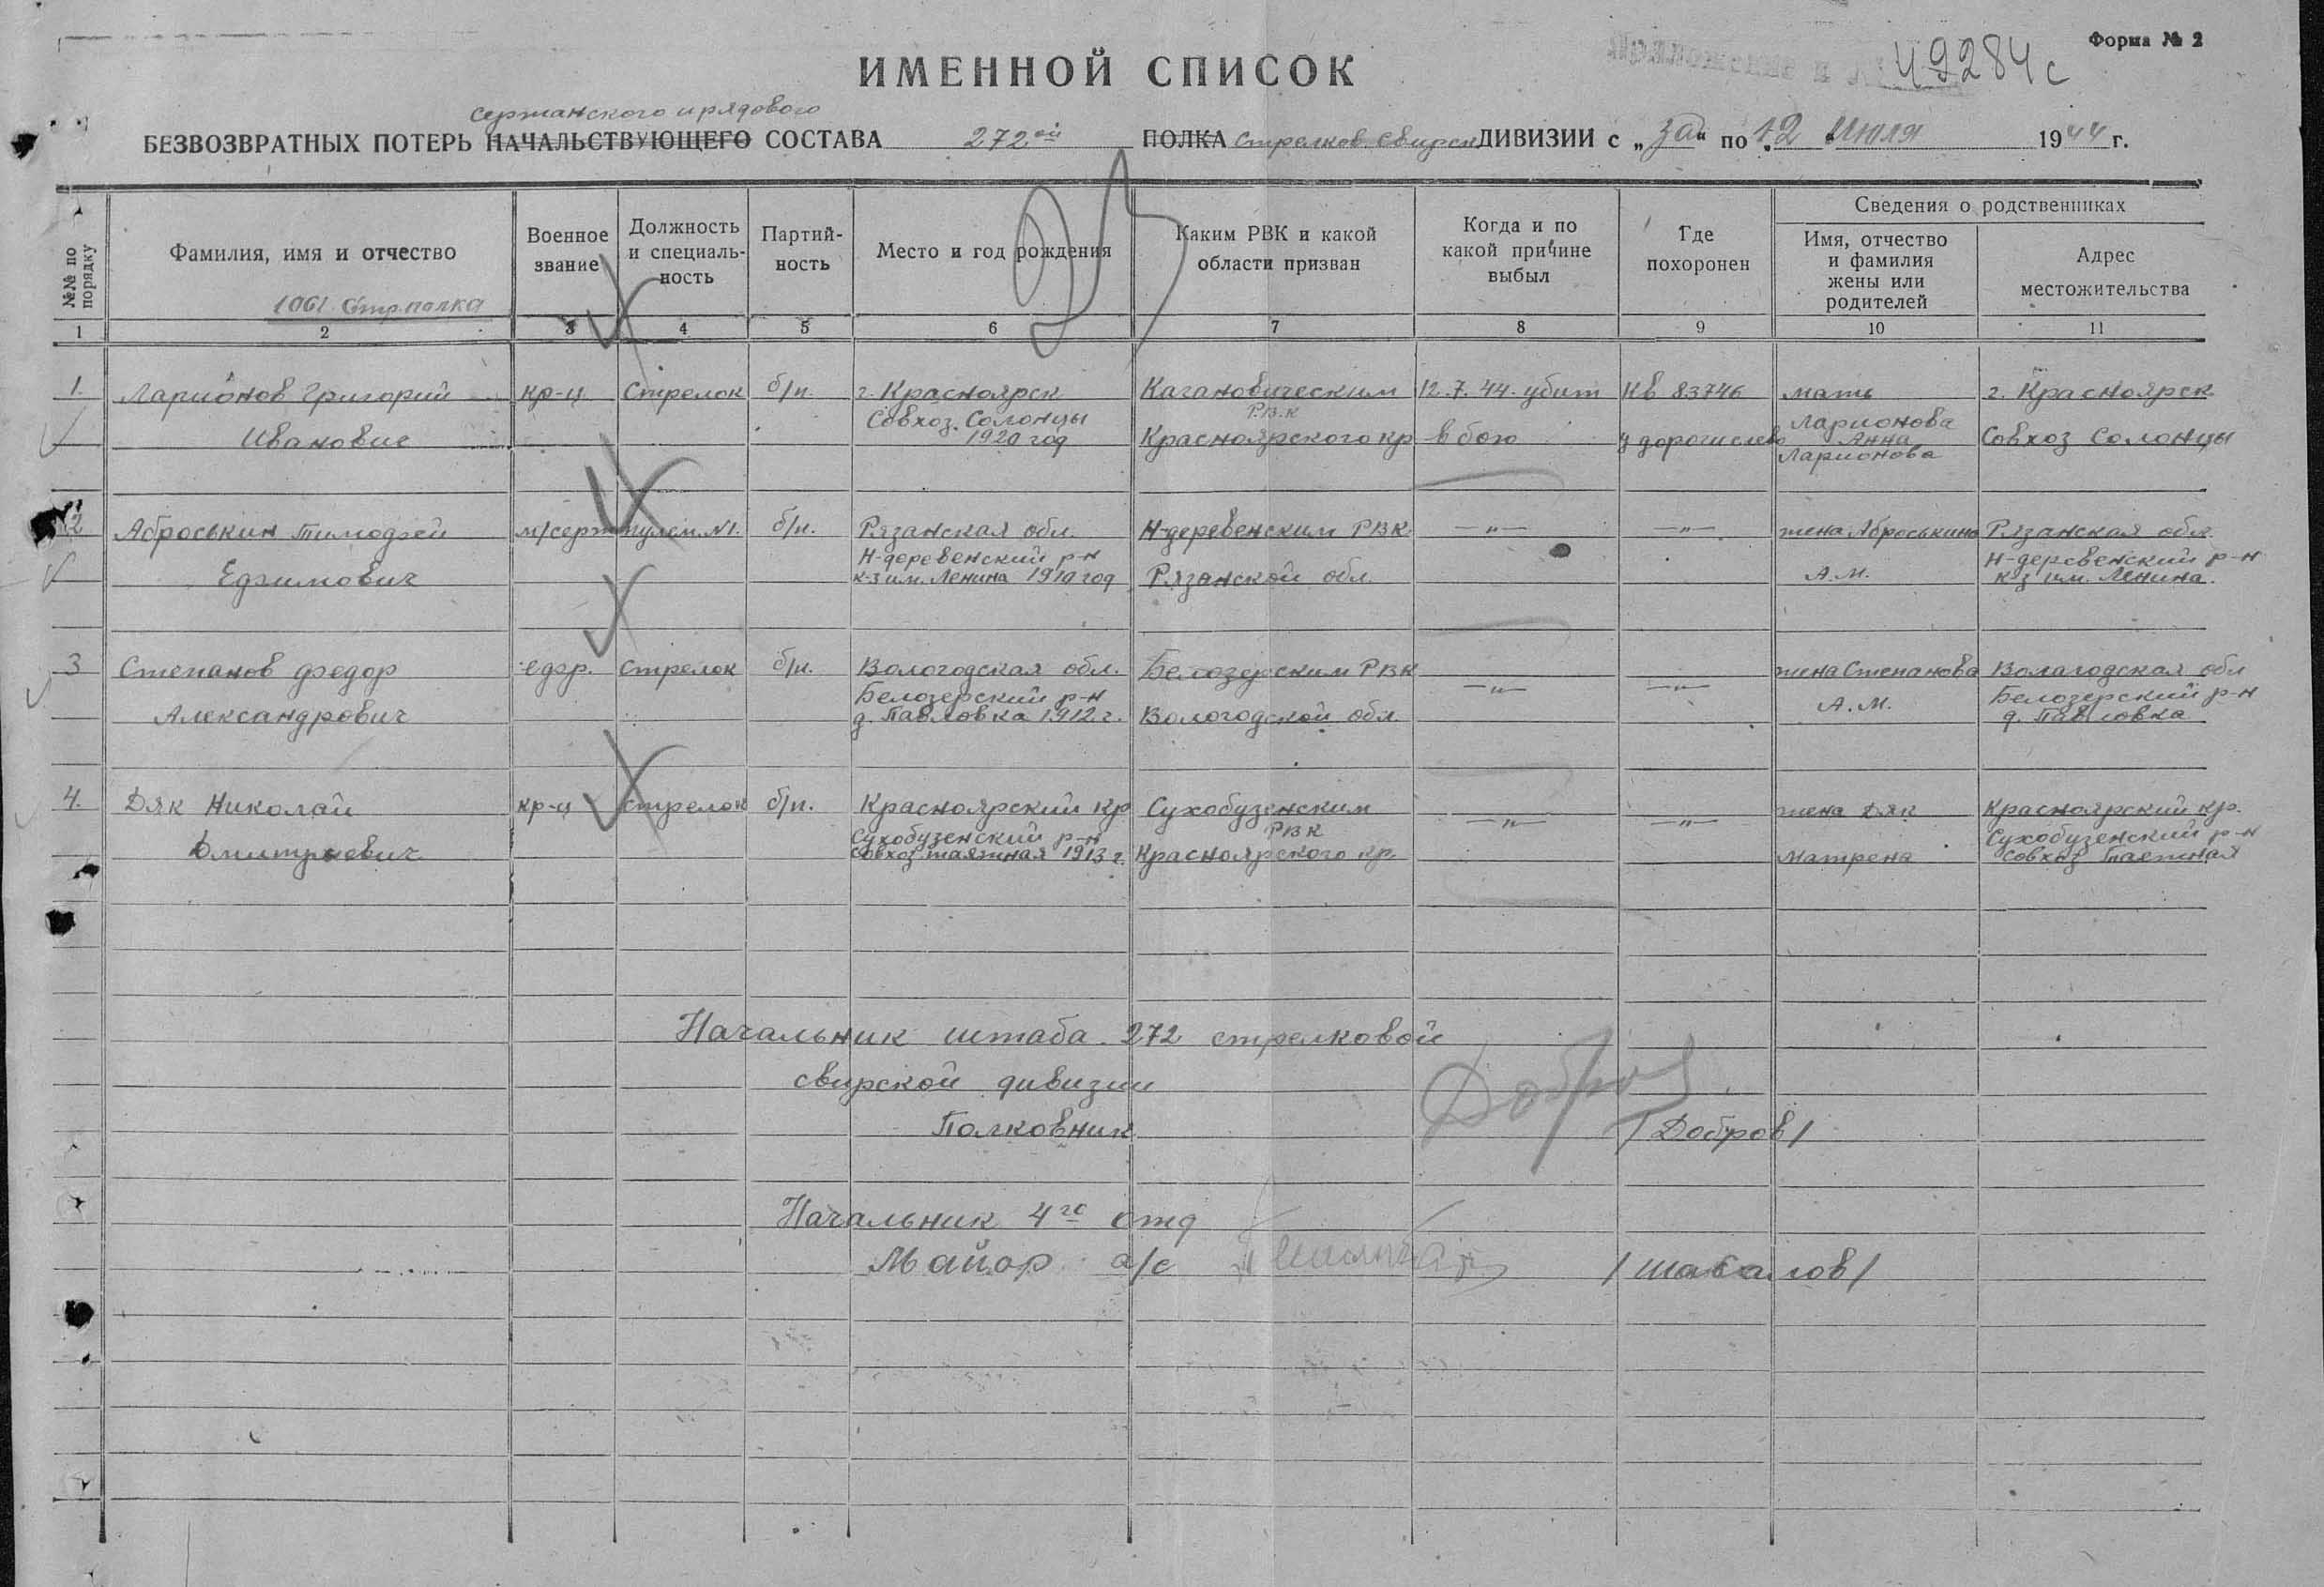 Форма № 2
49284с
ИМЕННОЙ СПИСОК
сержанского и рядового
БЕЗВОЗВРАТНЫХ ПОТЕРЬ НАЧАЛЬСТВУЮЩЕГО СОСТАВА 272ой ПОЛКА Стрелков. Свирск ДИВИЗИИ с „за“ по 12 Июля 1944 г.
№№ по порядку
Фамилия, имя и отчество
1061 Стр. полка
Военное звание
Должность и специаль-ность
Партий-ность
Место и год рождения
Каким РВК и какой области призван
Когда и по какой причине выбыл
Где похоронен
Сведения о родственниках
Имя, отчество и фамилия жены или родителей
Адрес местожительства
1 2 3 4 5 6 7 8 9 10 11
1. Ларионов Григорий кр-ц Стрелок б/п г. Красноярск Кагановическим 12.7.44. убит Кв 83746 мать г. Красноярск
Совхоз. Солонцы Р.В.К Ларионова
Иванович 1920 год Красноярского кр в бою у дороги слево Анна Совхоз Солонцы
Ларионова
2 Аброськин Тимофей м/серж пулем. №1. б/п. Рязанская обл. Н-деревенским РВК. —"— —"— жена Аброськина Рязанская обл.
Н-деревенский р-н Н-деревенский р-н
Ефимович к-з им. Ленина 1910 год Рязанской обл. А.М. к-з им. Ленина.
3 Степанов Федор ефр. Стрелок б/п. Вологодская обл. Белозерским РВК —"— —"— жена Степанова Вологодская обл
Белозерский р-н А.М. Белозерский р-н
Александрович д. Павловка 1912 г. Вологодской обл. д. Павловка
4. Дяк Николай кр-ц стрелок б/п. Красноярский кр Сухобузенским —"— —"— жена Дяк Красноярский кр.
Сухобузенский р-н РВК Сухобузенский р-н
Дмитриевич совхоз таяжная 1913 г. Красноярского кр. Матрена совхоз таяжная
Начальник штаба 272 стрелковой
свирской дивизии
Полковник Добров /Добров/
Начальник 4го отд
Майор а/с /Шабалов/